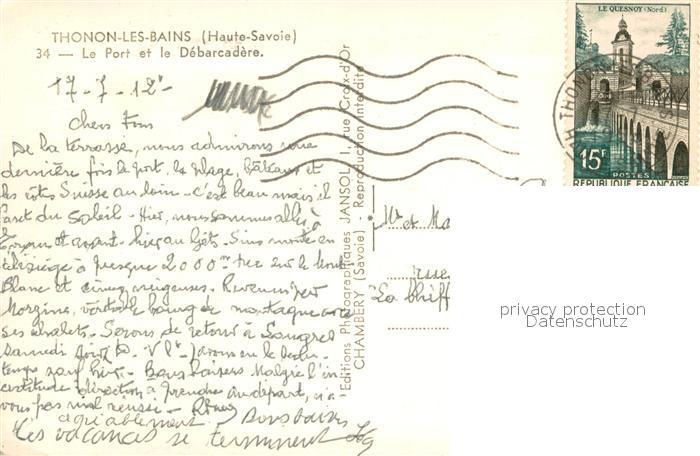 THONON-LES-BAINS (Haute-Savoie)
34 — Le Port et le Débarcadère.
LE QUESNOY (Nord)
15F
POSTES
REPUBLIQUE FRANÇAISE
THONON
17-7-12h-
Chers Tous
De la terrasse, nous admirons une
dernière fois le port, la plage, bateaux et
les côtes Suisse au loin - c'est beau mais il
faut du soleil - Hier, nous sommes allés à
et avant-hier au Gets. Sins monté en
télésiège à presque 2000m vue sur le Mont
Blanc et cimes neigeuses. Revenus par
Morzine, bourg de montagne avec
ses chalets. Serons de retour à Langres
samedi soir avons eu le beau
temps sauf hier. Bons baisers Malgré l'in
certitude direction à prendre au départ, n'a-
vons pas mal réussi - Rémy
agréablement Bons baisers
Les vacances se terminent
Editions Photographiques JANSOL, 1, rue Croix-d'Or
CHAMBÉRY (Savoie) - Reproduction interdite
Mr et Ma
rue
"La
privacy protection
Datenschutz